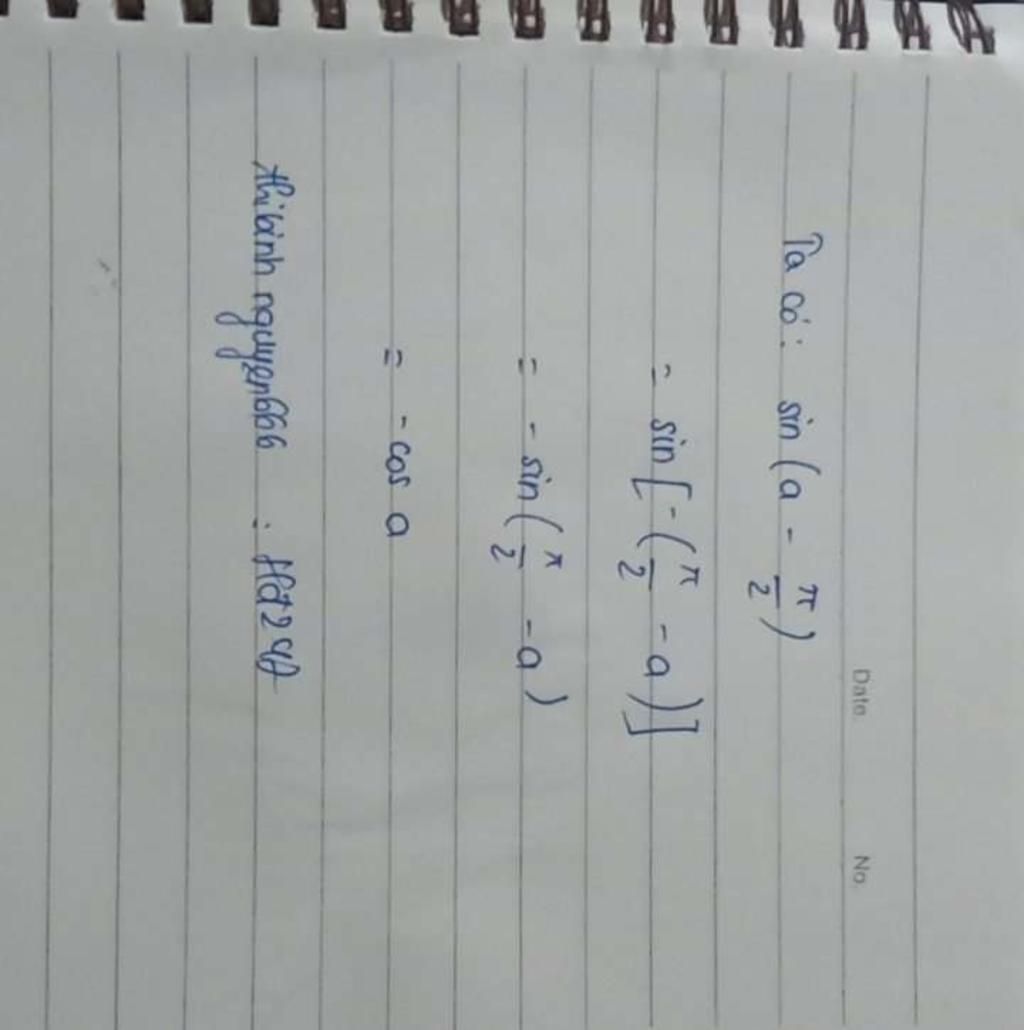 Date. No.
Ta có: sin(a - π/2)
= sin[-(π/2 - a)]
= - sin(π/2 - a)
= - cos a
thibinh nguyen666 :